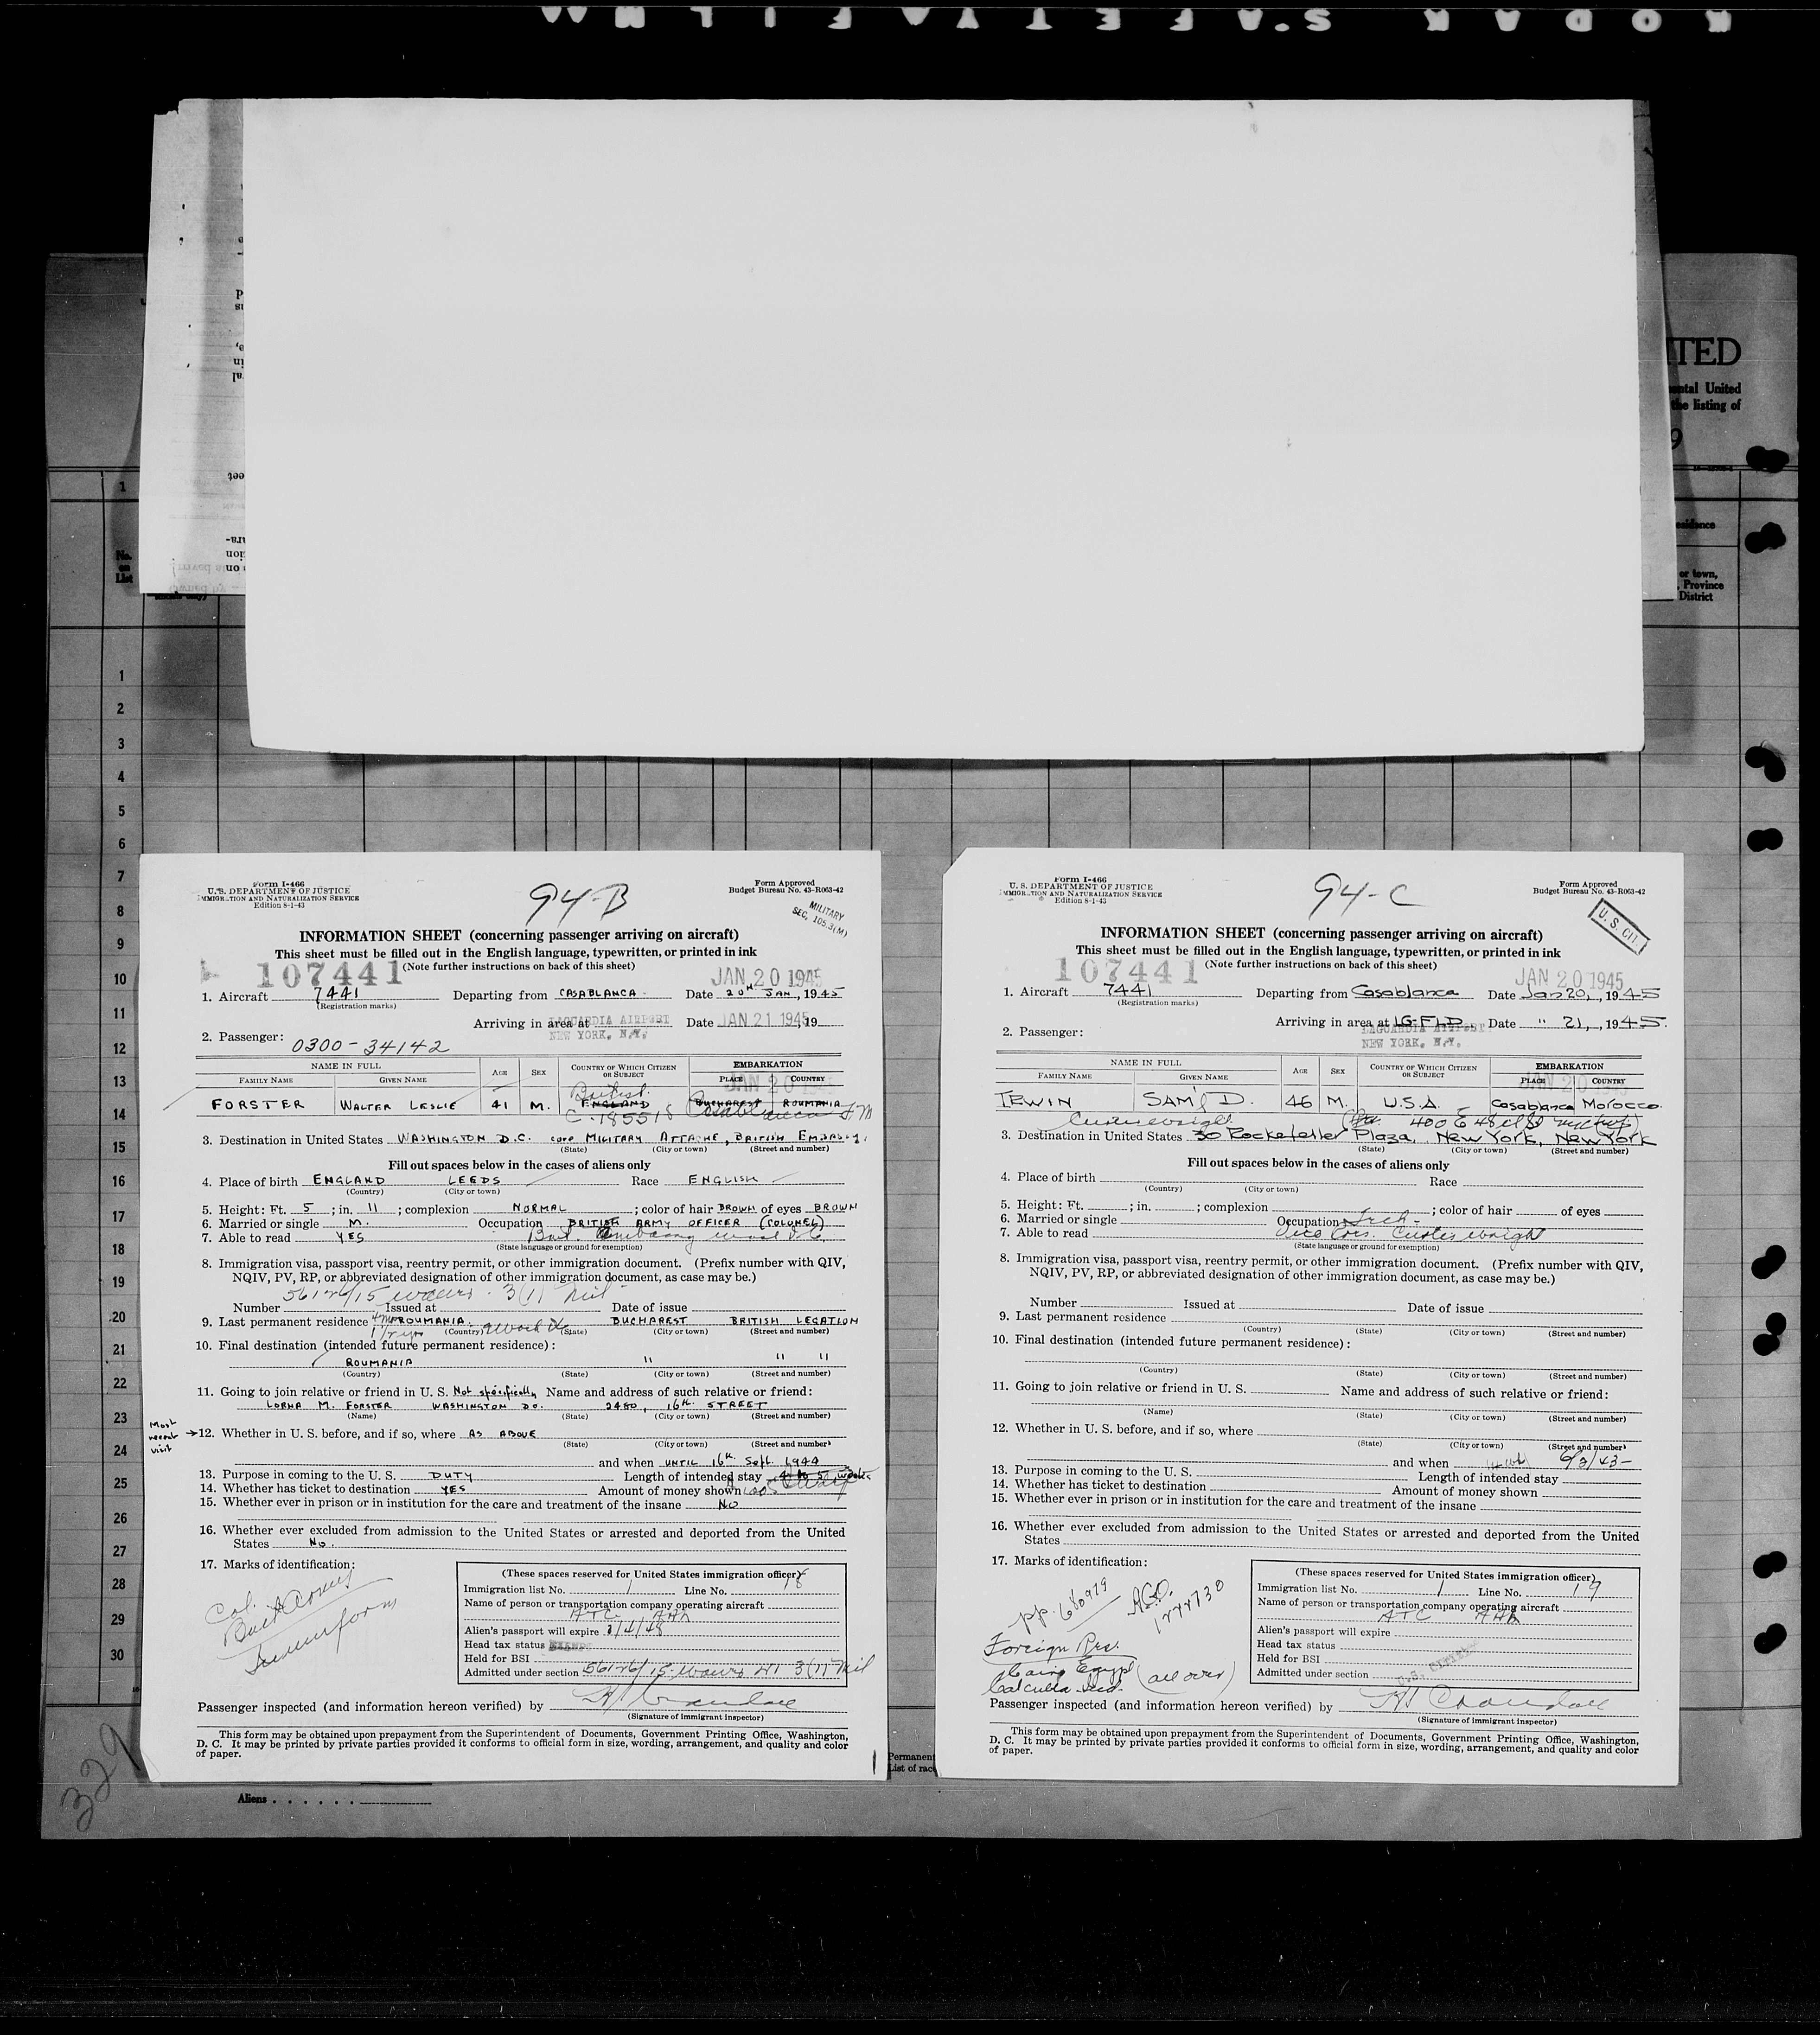 KODAK SAFETY FILM
ITED
ental United
the listing of
9
1
No.
on
List
esidence
or town,
Province
District
1
2
3
4
5
6
7
8
9
10
11
12
13
14
15
16
17
18
19
20
21
22
23
24
25
26
27
28
29
30
Form I-466
U. S. DEPARTMENT OF JUSTICE
IMMIGRATION AND NATURALIZATION SERVICE
Edition 8-1-43
94-B
Form Approved
Budget Bureau No. 43-R063-42
MILITARY
SEC. 105.3(M)
INFORMATION SHEET (concerning passenger arriving on aircraft)
This sheet must be filled out in the English language, typewritten, or printed in ink
(Note further instructions on back of this sheet)
107441
JAN 20 1945
1. Aircraft 7441 Departing from CASABLANCA Date 20TH JAN, 1945
(Registration marks)
Arriving in area at LAGUARDIA AIRPORT Date JAN 21 1945 19
NEW YORK, N.Y.
2. Passenger: 0300-34142
NAME IN FULL AGE SEX COUNTRY OF WHICH CITIZEN OR SUBJECT EMBARKATION
FAMILY NAME GIVEN NAME PLACE COUNTRY
JAN 20
British
FORSTER WALTER LESLIE 41 M. ENGLAND BUCHAREST ROUMANIA
C-185518 Casablanca F M
3. Destination in United States WASHINGTON D.C. care MILITARY ATTACHE, BRITISH EMBASSY.
(State) (City or town) (Street and number)
Fill out spaces below in the cases of aliens only
4. Place of birth ENGLAND LEEDS Race ENGLISH
(Country) (City or town)
5. Height: Ft. 5; in. 11; complexion NORMAL; color of hair BROWN of eyes BROWN
6. Married or single M. Occupation BRITISH ARMY OFFICER (COLONEL)
7. Able to read YES Brit. Embassy Wash D.C.
(State language or ground for exemption)
8. Immigration visa, passport visa, reentry permit, or other immigration document. (Prefix number with QIV,
NQIV, PV, RP, or abbreviated designation of other immigration document, as case may be.)
3(1) Mil
Number Issued at Date of issue
9. Last permanent residence ROUMANIA BUCHAREST BRITISH LEGATION
(Country) (State) (City or town) (Street and number)
10. Final destination (intended future permanent residence):
ROUMANIA " " "
(Country) (State) (City or town) (Street and number)
11. Going to join relative or friend in U. S. Not specifically Name and address of such relative or friend:
LORNA M. FORSTER WASHINGTON DC. 2480, 16th STREET
(Name) (State) (City or town) (Street and number)
Most recent visit
→12. Whether in U. S. before, and if so, where AS ABOVE
(State) (City or town) (Street and number)
and when UNTIL 16th Sept. 1944
13. Purpose in coming to the U. S. DUTY Length of intended stay 4 to 5 weeks
14. Whether has ticket to destination YES Amount of money shown
15. Whether ever in prison or in institution for the care and treatment of the insane No
16. Whether ever excluded from admission to the United States or arrested and deported from the United
States No.
17. Marks of identification:
Col.
Brit Army
In uniform
(These spaces reserved for United States immigration officer)
Immigration list No. 1 Line No. 18
Name of person or transportation company operating aircraft
ATC
Alien's passport will expire 3/4/48
Head tax status EXEMPT
Held for BSI
Admitted under section 3(1) Mil
Passenger inspected (and information hereon verified) by
(Signature of immigrant inspector)
This form may be obtained upon prepayment from the Superintendent of Documents, Government Printing Office, Washington,
D. C. It may be printed by private parties provided it conforms to official form in size, wording, arrangement, and quality and color
of paper.
Form I-466
U. S. DEPARTMENT OF JUSTICE
IMMIGRATION AND NATURALIZATION SERVICE
Edition 8-1-43
94-C
Form Approved
Budget Bureau No. 43-R063-42
U. S. CIT.
INFORMATION SHEET (concerning passenger arriving on aircraft)
This sheet must be filled out in the English language, typewritten, or printed in ink
(Note further instructions on back of this sheet)
107441
JAN 20 1945
1. Aircraft 7441 Departing from Casablanca Date Jan 20, 1945
(Registration marks)
Arriving in area at LG-FLD. Date " 21, 1945.
LAGUARDIA AIRPORT
NEW YORK, N.Y.
2. Passenger:
NAME IN FULL AGE SEX COUNTRY OF WHICH CITIZEN OR SUBJECT EMBARKATION
FAMILY NAME GIVEN NAME PLACE COUNTRY
JAN 20
IRWIN SAM'L D. 46 M. U.S.A. Casablanca Morocco.
400 E 48
3. Destination in United States 30 Rockefeller Plaza, New York, New York
(State) (City or town) (Street and number)
Fill out spaces below in the cases of aliens only
4. Place of birth Race
(Country) (City or town)
5. Height: Ft. ; in. ; complexion ; color of hair of eyes
6. Married or single Occupation
7. Able to read Vice Pres. Curtis Wright
(State language or ground for exemption)
8. Immigration visa, passport visa, reentry permit, or other immigration document. (Prefix number with QIV,
NQIV, PV, RP, or abbreviated designation of other immigration document, as case may be.)
Number Issued at Date of issue
9. Last permanent residence
(Country) (State) (City or town) (Street and number)
10. Final destination (intended future permanent residence):
(Country) (State) (City or town) (Street and number)
11. Going to join relative or friend in U. S. Name and address of such relative or friend:
(Name) (State) (City or town) (Street and number)
12. Whether in U. S. before, and if so, where
(State) (City or town) (Street and number)
and when
13. Purpose in coming to the U. S. Length of intended stay
14. Whether has ticket to destination Amount of money shown
15. Whether ever in prison or in institution for the care and treatment of the insane
16. Whether ever excluded from admission to the United States or arrested and deported from the United
States
17. Marks of identification:
pp. 680979
A.G.O.
Foreign Res.
Cairo Egypt
Calcutta Ind. (all over)
(These spaces reserved for United States immigration officer)
Immigration list No. 1 Line No. 19
Name of person or transportation company operating aircraft
ATC
Alien's passport will expire
Head tax status
Held for BSI
Admitted under section U.S. Citizen
Passenger inspected (and information hereon verified) by
(Signature of immigrant inspector)
This form may be obtained upon prepayment from the Superintendent of Documents, Government Printing Office, Washington,
D. C. It may be printed by private parties provided it conforms to official form in size, wording, arrangement, and quality and color
of paper.
Permanent
List of rac
Aliens
329